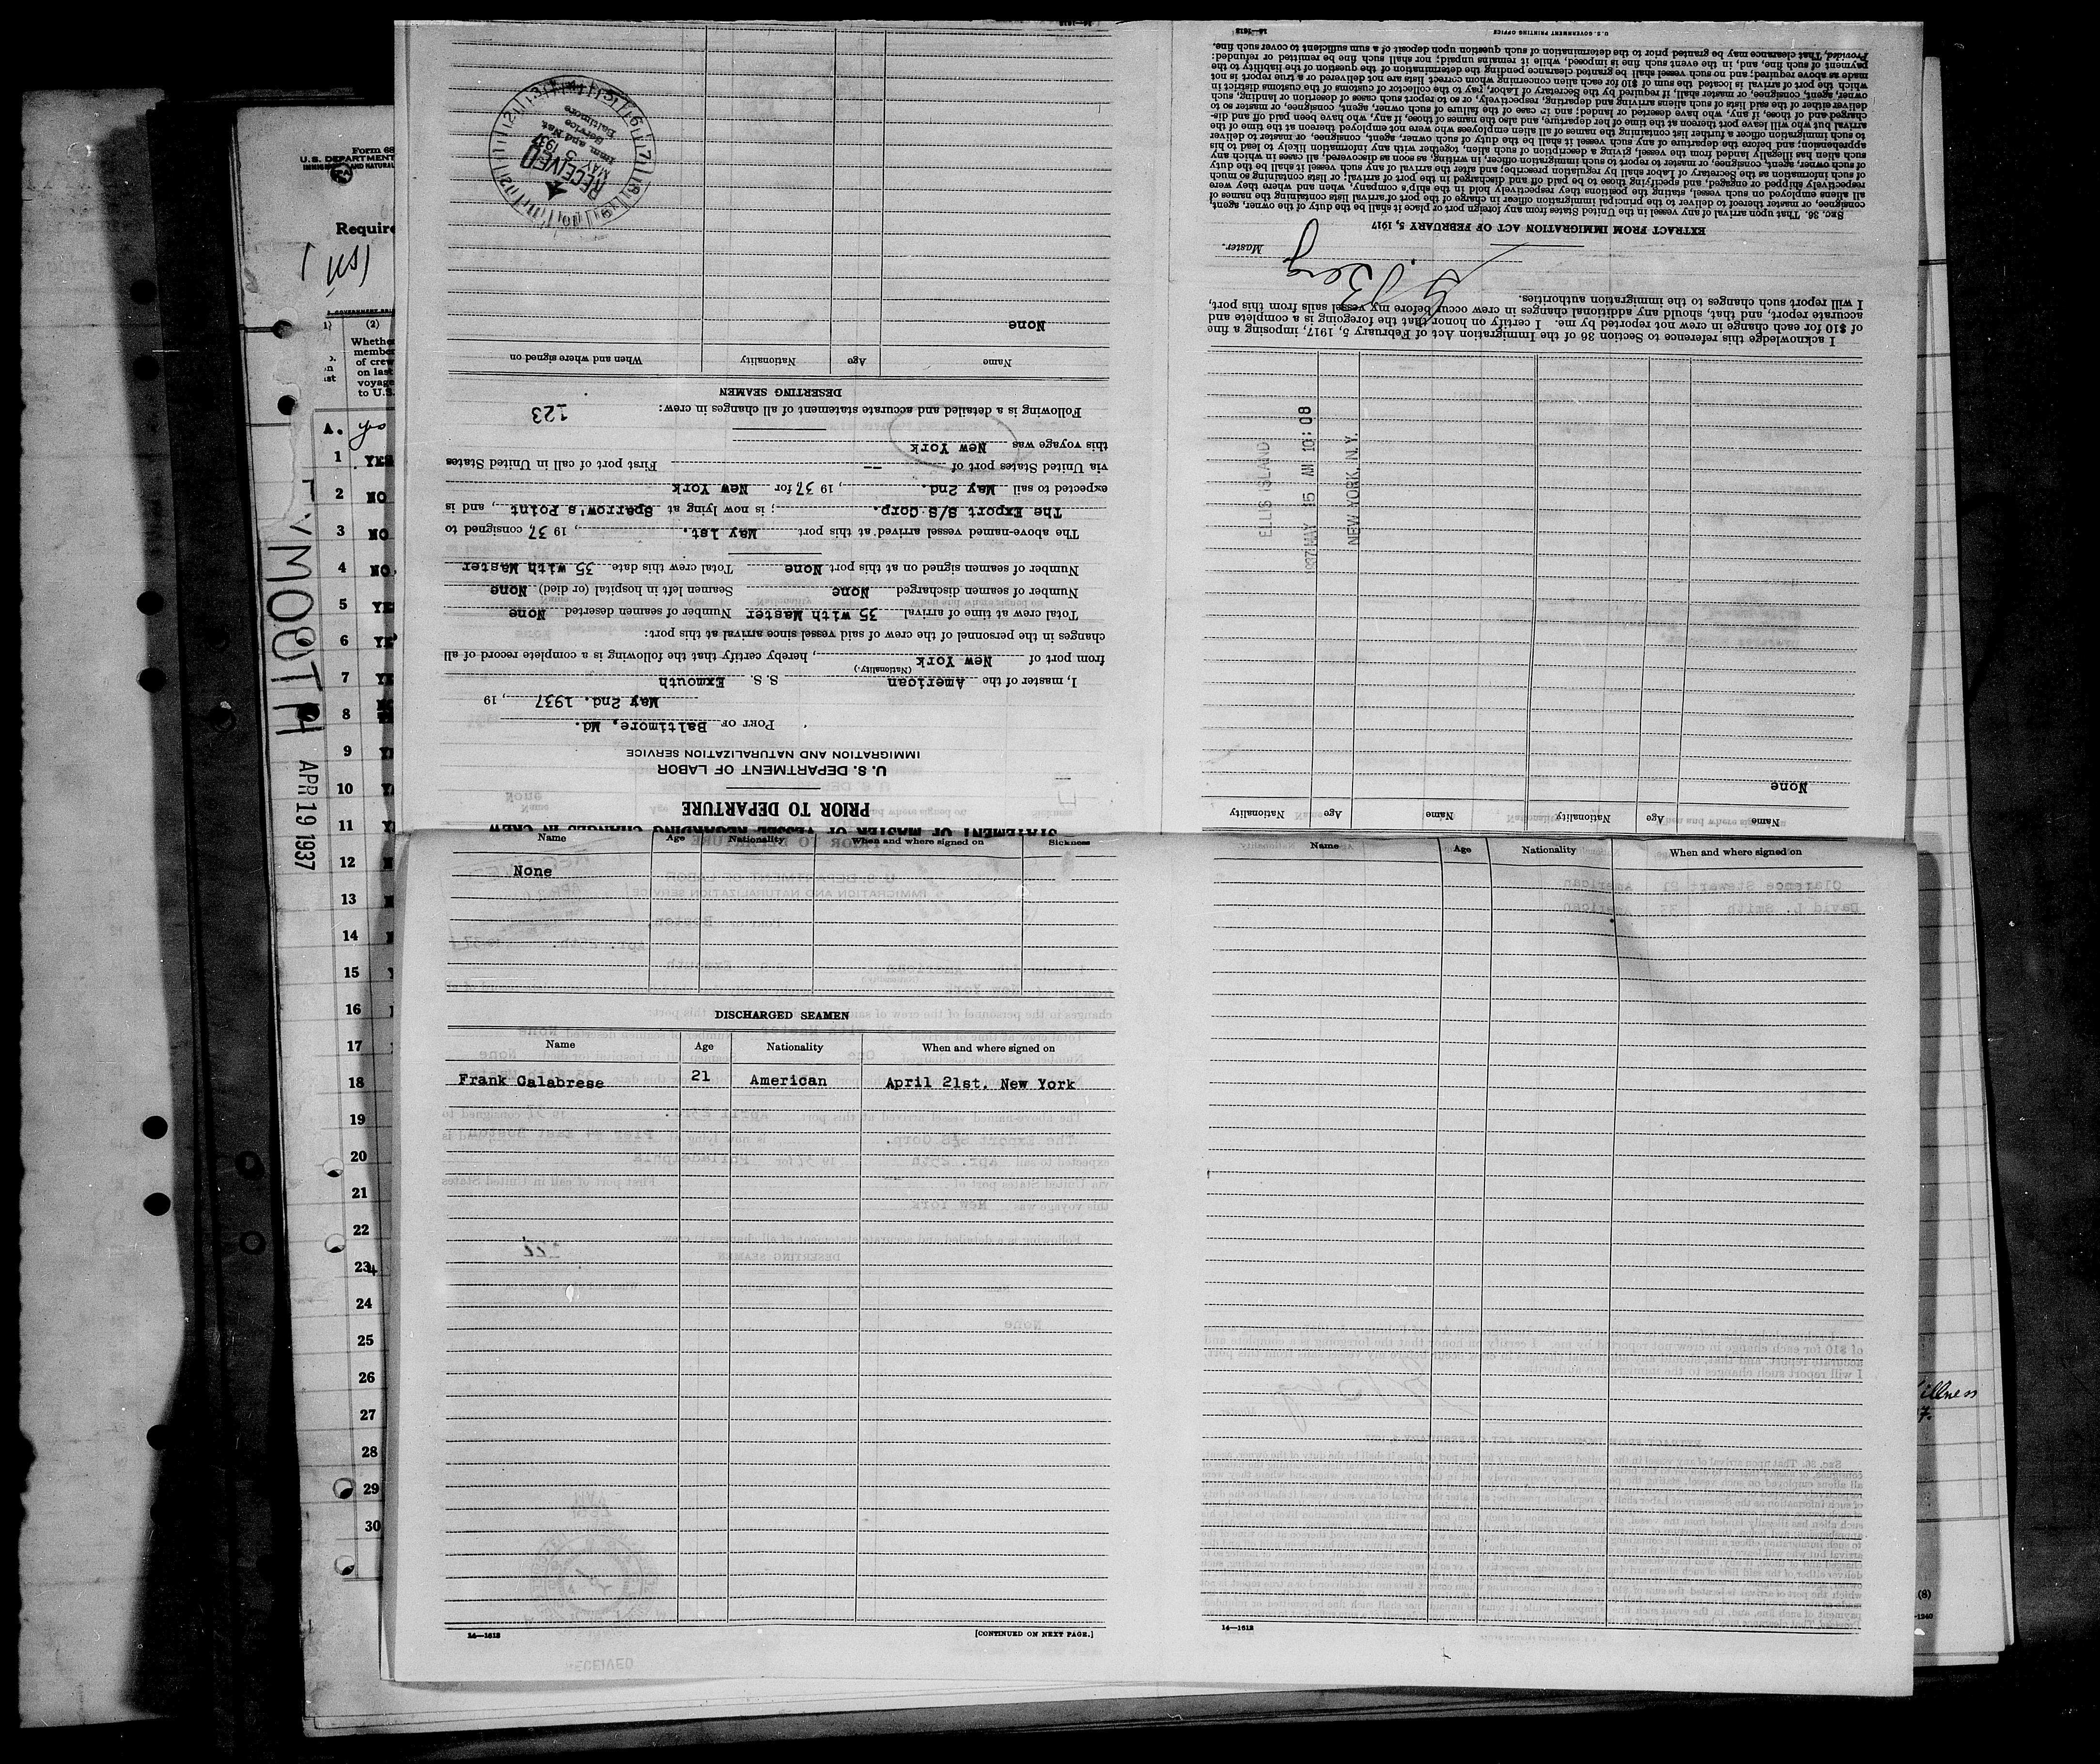 Form 68
U.S. DEPARTMENT
Require
(US)
(2)
Whethe
membe
of crew
on last
voyage
to U.S.
A. yes
1 YES
2 NO
3 NO
4 NO
5 YES
6 YES
7 YE
8
9 Y
10 Y
11 Y
12
13
14
15
16
17
18
19
20
21
22
23
24
25
26
27
28
29
30
YMOUTH
APR 19 1937
STATEMENT OF MASTER OF VESSEL REGARDING CHANGES IN CREW
PRIOR TO DEPARTURE
U. S. DEPARTMENT OF LABOR
IMMIGRATION AND NATURALIZATION SERVICE
PORT OF Baltimore, Md.
May 2nd. 1937, 19
I, master of the American S. S. Exmouth
(Nationality.)
from port of New York, hereby certify that the following is a complete record of all
changes in the personnel of the crew of said vessel since arrival at this port:
Total crew at time of arrival 35 with Master Number of seamen deserted None
Number of seamen discharged None Seamen left in hospital (or died) None
Number of seamen signed on at this port None Total crew this date 35 with Master
The above-named vessel arrived at this port May 1st., 19 37, consigned to
The Export S/S Corp.; is now lying at Sparrow's Point, and is
expected to sail May 2nd., 19 37 for New York
via United States port of -- First port of call in United States
this voyage was New York
Following is a detailed and accurate statement of all changes in crew: 123
DESERTING SEAMEN
Name Age Nationality When and where signed on
None
RECEIVED
MAY 5 1937
Imm and Nat
Service
Baltimore
14—1612
Name Age Nationality Name Age Nationality
None
ELLIS ISLAND
1937 MAY 15 AM 10:08
NEW YORK, N.Y.
I acknowledge this reference to Section 36 of the Immigration Act of February 5, 1917, imposing a fine
of $10 for each change in crew not reported by me. I certify on honor that the foregoing is a complete and
accurate report, and that, should any additional changes in crew occur before my vessel sails from this port,
I will report such changes to the immigration authorities.
Berg
Master.
EXTRACT FROM IMMIGRATION ACT OF FEBRUARY 5, 1917
SEC. 36. That upon arrival of any vessel in the United States from any foreign port or place it shall be the duty of the owner, agent,
consignee, or master thereof to deliver to the principal immigration officer in charge of the port of arrival lists containing the names of
all aliens employed on such vessel, stating the positions they respectively hold in the ship's company, when and where they were
respectively shipped or engaged, and specifying those to be paid off and discharged in the port of arrival; or lists containing so much
of such information as the Secretary of Labor shall by regulation prescribe; and after the arrival of any such vessel it shall be the duty
of such owner, agent, consignee, or master to report to such immigration officer, in writing, as soon as discovered, all cases in which any
such alien has illegally landed from the vessel, giving a description of such alien, together with any information likely to lead to his
apprehension; and before the departure of any such vessel it shall be the duty of such owner, agent, consignee, or master to deliver
to such immigration officer a further list containing the names of all alien employees who were not employed thereon at the time of the
arrival but who will leave port thereon at the time of her departure, and also the names of those, if any, who have been paid off and dis-
charged and of those, if any, who have deserted or landed; and in case of the failure of such owner, agent, consignee, or master so to
deliver either of the said lists of such aliens arriving and departing, respectively, or so to report such cases of desertion or landing, such
owner, agent, consignee, or master shall, if required by the Secretary of Labor, pay to the collector of customs of the customs district in
which the port of arrival is located the sum of $10 for each alien concerning whom correct lists are not delivered or a true report is not
made as above required; and no such vessel shall be granted clearance pending the determination of the question of the liability to the
payment of such fine, and, in the event such fine is imposed, while it remains unpaid; nor shall such fine be remitted or refunded:
Provided, That clearance may be granted prior to the determination of such question upon deposit of a sum sufficient to cover such fine.
14—1612 U. S. GOVERNMENT PRINTING OFFICE
Name Age Nationality When and where signed on Sickness
None
DISCHARGED SEAMEN
Name Age Nationality When and where signed on
Frank Calabrese 21 American April 21st. New York
14—1612 [CONTINUED ON NEXT PAGE.]
Name Age Nationality When and where signed on
14—1612
illness
7.
(8)